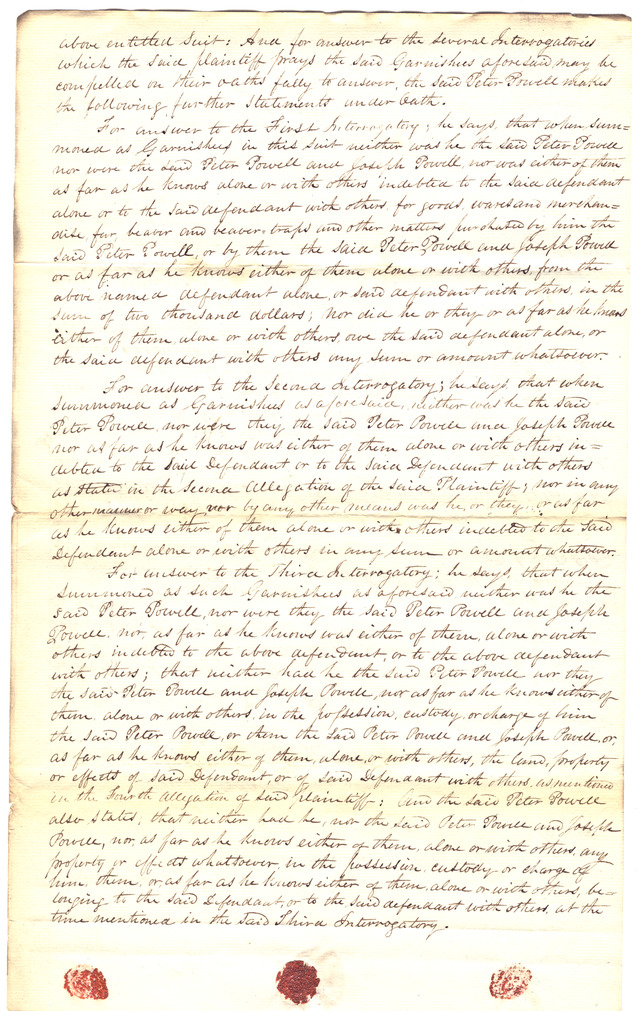 above entitled Suit: And for answer to the several Interrogatories
which the said plaintiff prays the said Garnishees aforesaid, may be
compelled on their oaths fully to answer, the said Peter Powell makes
the following further Statements under Oath.
For answer to the First Interrogatory; he says, that when sum=
moned as Garnishees in this suit neither was he the said Peter Powell
nor were the said Peter Powell and Joseph Powell, nor was either of them
as far as he knows alone or with others indebted to the said defendant
alone or to the said defendant with others for goods, wares and merchan=
dise, fur, beaver and beaver traps and other matters purchased by him the
said Peter Powell, or by them the said Peter Powell and Joseph Powell
or as far as he knows either of them alone or with others, from the
above named defendant alone, or said defendant with others, in the
sum of two thousand dollars; nor did he or they or as far as he knows
either of them, alone or with others, owe the said defendant alone, or
the said defendant with others any sum or amount whatsoever.
For answer to the Second Interrogatory; he says, that when
summoned as Garnishees as aforesaid, neither was he the said
Peter Powell, nor were they the said Peter Powell and Joseph Powell
nor as far as he knows was either of them alone or with others in=
debted to the said Defendant or to the said Defendant with others
as stated in the Second Allegation of the said Plaintiff; nor in any
other manner or way nor by any other means was he, or they, or as far
as he knows either of them alone or with others indebted to the said
Defendant alone or with others in any sum or amount whatsoever.
For answer to the Third Interrogatory; he says, that when
summoned as such Garnishees as aforesaid neither was he the
said Peter Powell, nor were they the said Peter Powell and Joseph
Powell, nor, as far as he knows was either of them, alone or with
others indebted to the above defendant, or to the above defendant
with others; that neither had he the said Peter Powell nor they
the said Peter Powell and Joseph Powell, nor as far as he knows either of
them, alone or with others, in the possession, custody, or charge of him
the said Peter Powell, or them the said Peter Powell and Joseph Powell, or,
as far as he knows either of them, alone, or with others, the land, property
or effects of said Defendant, or of said Defendant with others, as mentioned
in the Fourth Allegation of said plaintiff: And the said Peter Powell
also states, that neither had he, nor the said Peter Powell and Joseph
Powell, nor, as far as he knows either of them, alone or with others, any
property or effects whatsoever, in the possession, custody or charge of
him, them, or, as far as he knows either of them, alone or with others, be=
longing to the said Defendant, or to the said defendant with others, at the
time mentioned in the said Third Interrogatory.